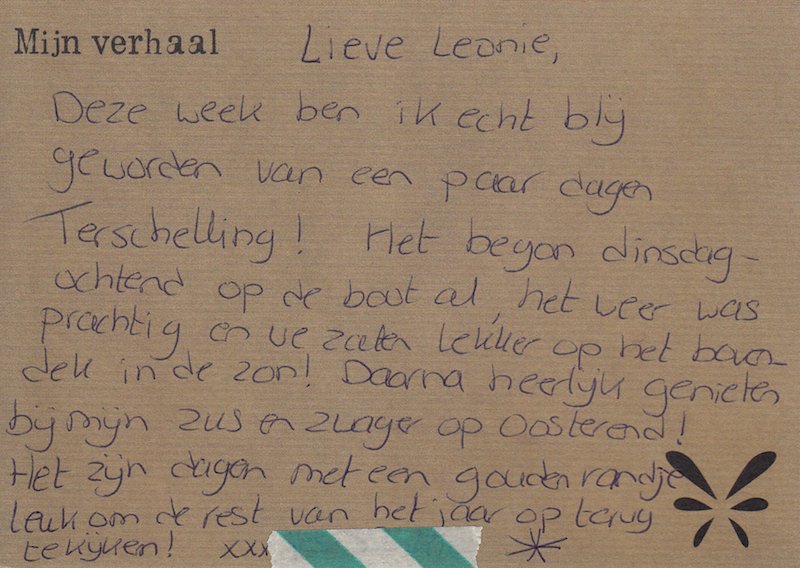 Mijn verhaal Lieve Leonie,
Deze week ben ik echt blij
geworden van een paar dagen
Terschelling! Het begon dinsdag-
ochtend op de boot al, het weer was
prachtig en we zaten lekker op het boven-
dek in de zon! Daarna heerlijk genieten
bij mijn zus en zwager op Oosterend!
Het zijn dagen met een gouden randje
leuk om de rest van het jaar op terug
te kijken! xxx